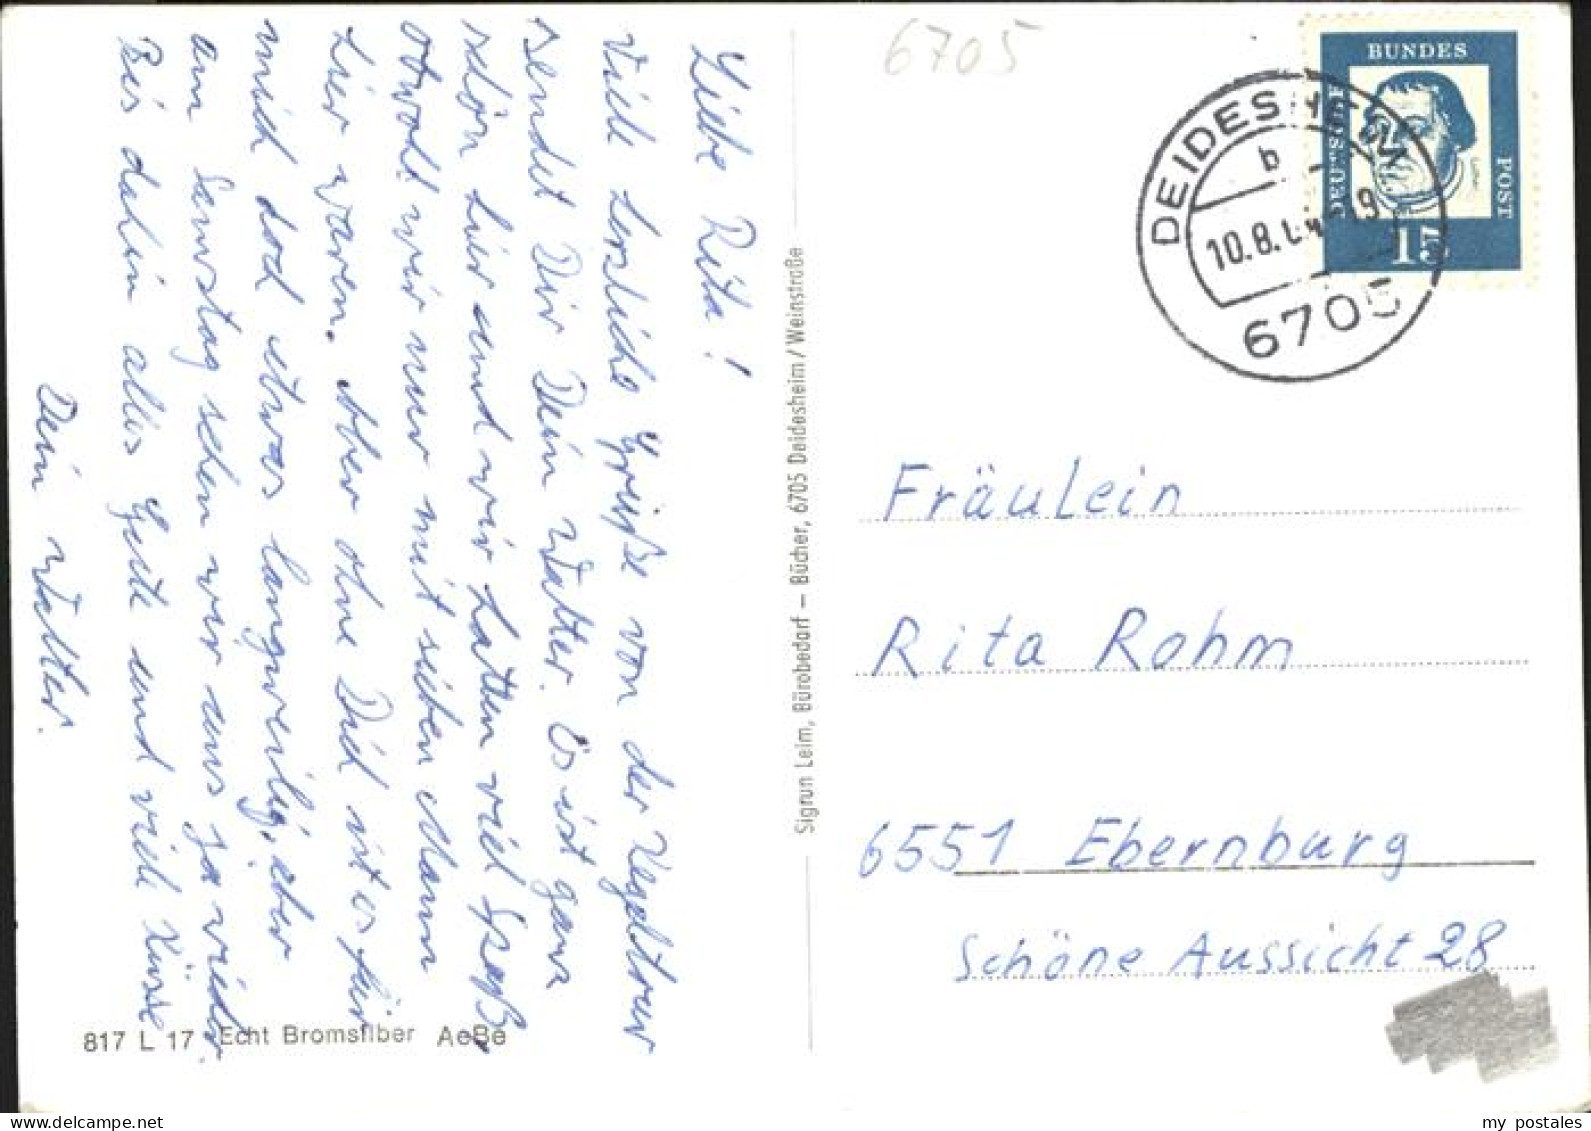 Liebe Rita!
Viele herzliche Grüße von der Kegeltour
sendet Dir Dein Walter. Es ist ganz
schön hier und wir hatten viel Spaß,
obwohl wir nur mit sieben Mann
hier waren. Aber ohne Dich ist es für
mich doch etwas langweilig, aber
am Samstag sehen wir uns ja wieder.
Bis dahin alles Gute und viele Küsse
Dein Walter.
817 L 17 Echt Bromsilber AeBe
Sigrun Leim, Bürobedarf – Bücher, 6705 Deidesheim / Weinstraße
6705
BUNDES
POST
DEUTSCHE
15
DEIDESHEIM
b
10.8.64-19
6705
Fräulein
Rita Rohm
6551 Ebernburg
Schöne Aussicht 28
my postales